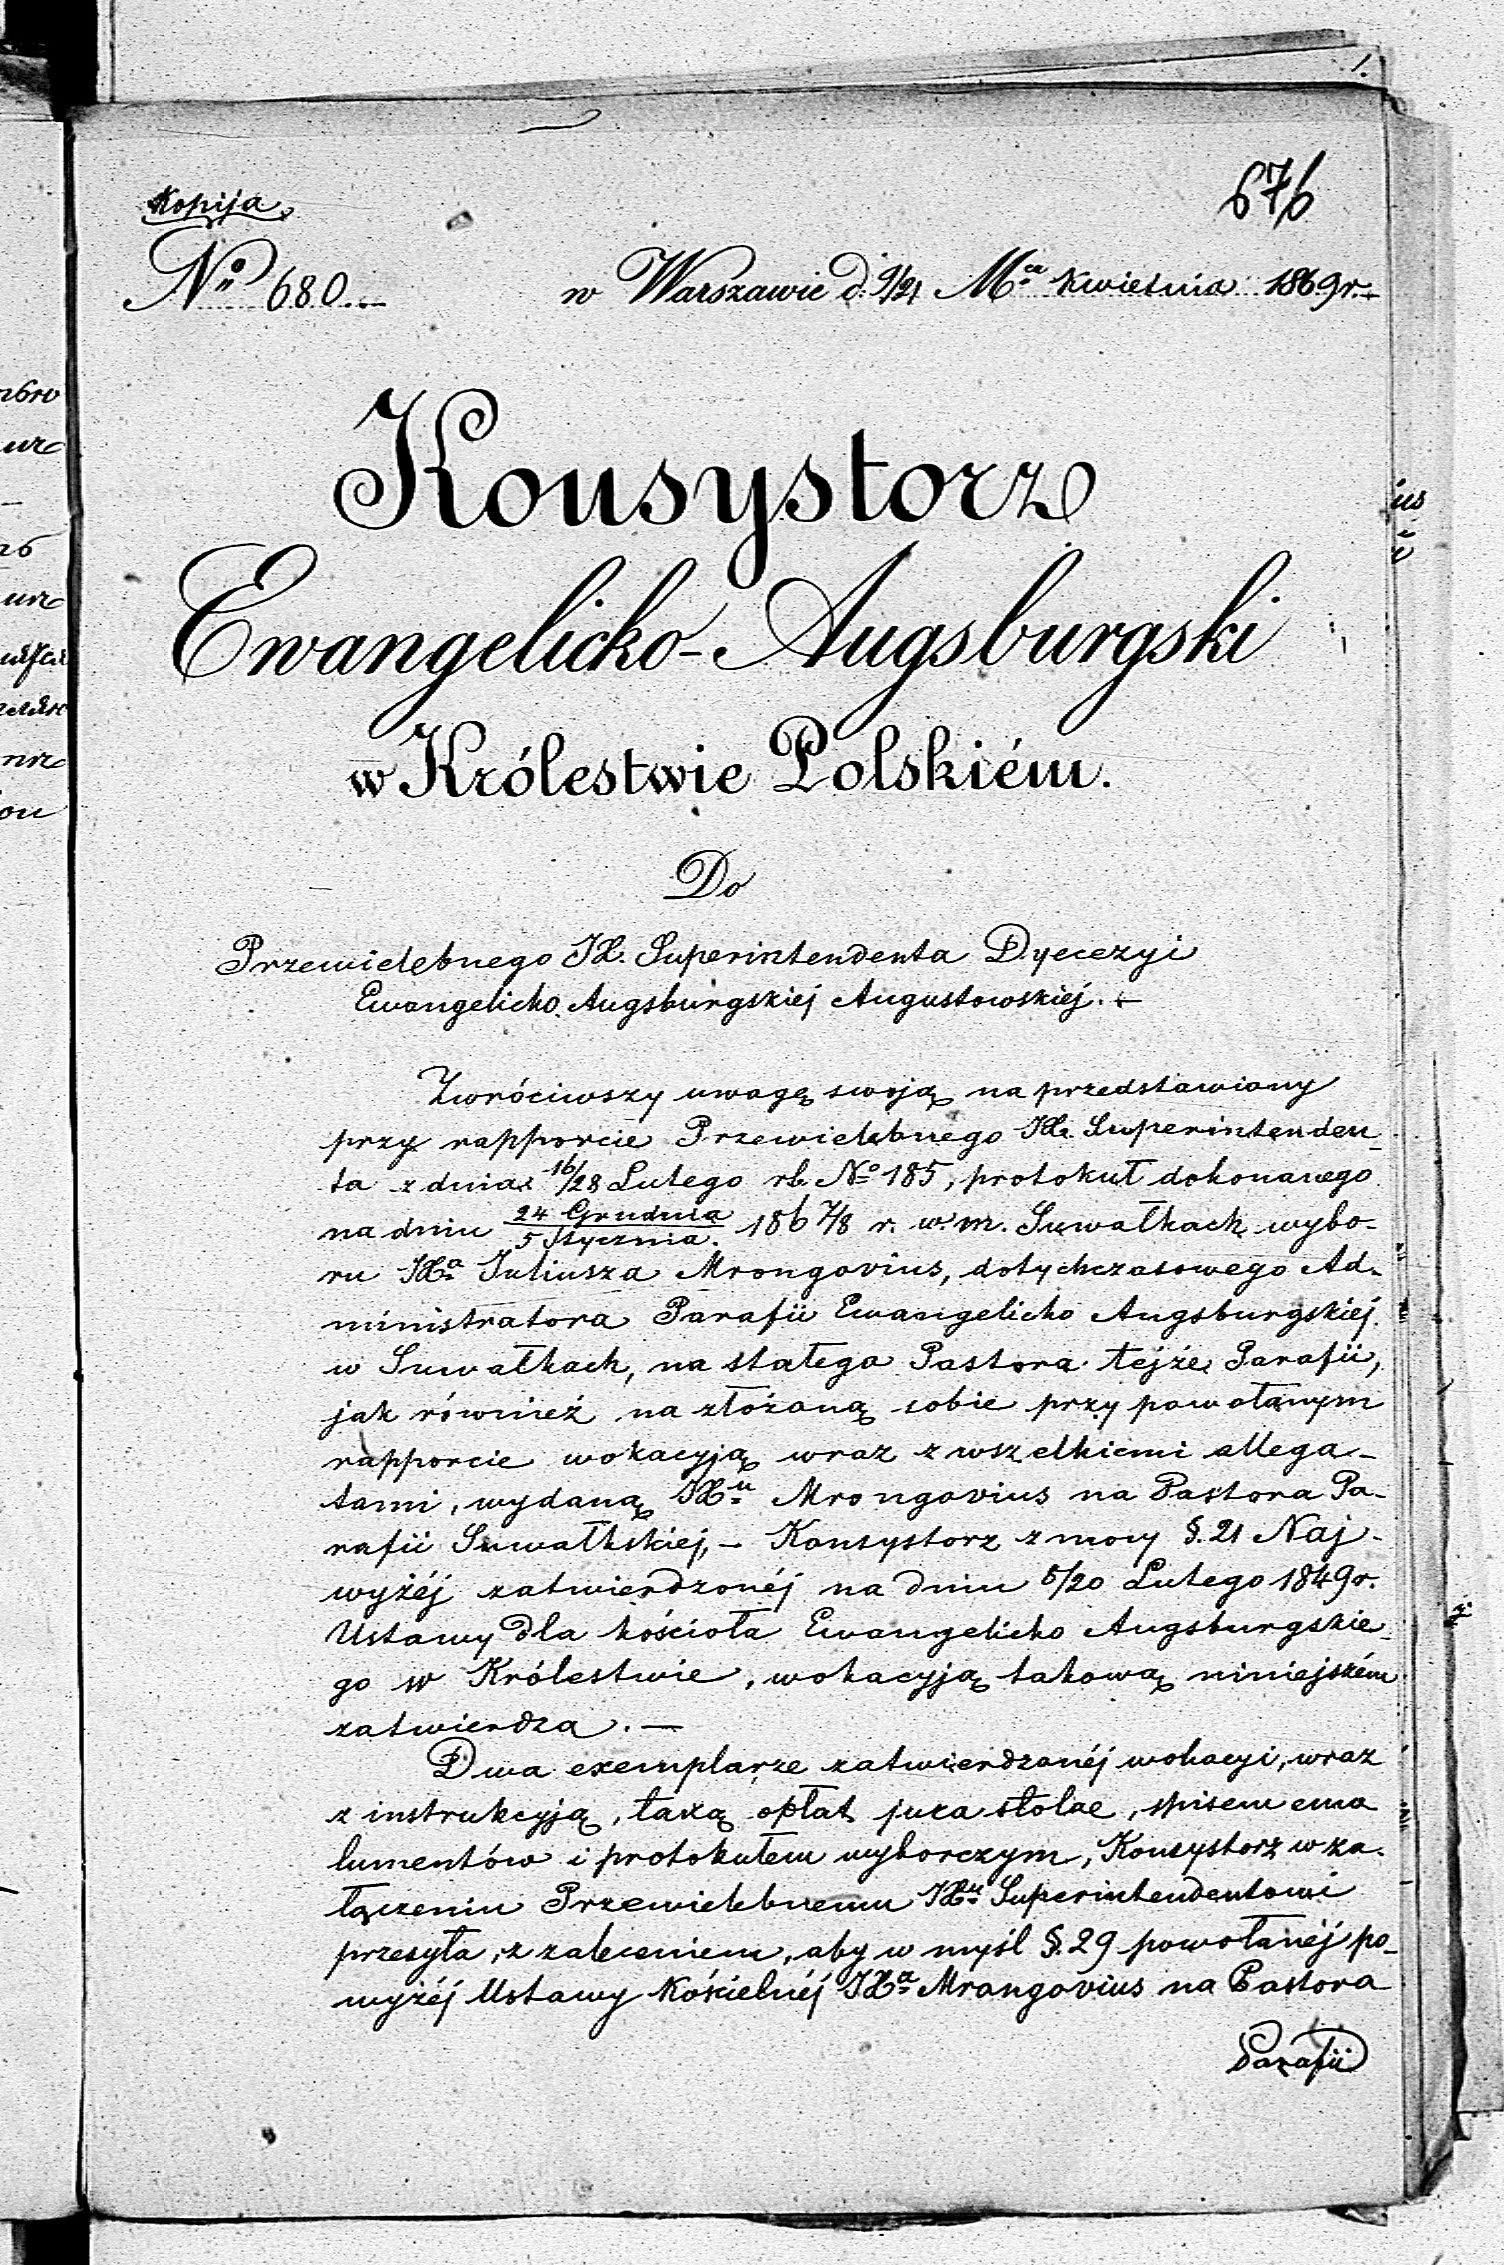 1.
676
Kopija
No 680
w Warszawie d. 9/21 Mca Kwietnia 1869 r.
Konsystorz
Ewangelicko-Augsburgski
w Królestwie Polskiém.
Do
Przewielebnego JX. Superintendenta Dyecezyi
Ewangelicko Augsburgskiej Augustowskiej. -
Zwróciwszy uwagę swoją na przedstawiony
przy rapporcie Przewielebnego JX. Superintenden_
ta z dnia 16/28 Lutego rb. No 185, protokuł dokonanego
na dniu 24 Grudnia / 5 Stycznia. 186 7/8 r. w. m. Suwałkach wybo-
ru JXa Juliusza Mrongovius, dotychczasowego Ad-
ministratora Parafii Ewangelicko Augsburgskiej
w Suwałkach, na stałego Pastora tejże Parafii,
jak również na złożoną sobie przy powołanym
rapporcie wokacyją wraz z wszelkiemi allega-
tami, wydaną JXu Mrongovius na Pastora Pa-
rafii Suwałkskiej, - Konsystorz z mocy §. 21 Naj-
wyżéj zatwierdzonéj na dniu 8/20 Lutego 1849 r.
Ustawy dla kościoła Ewangelicko Augsburgskie_
go w Królestwie, wokacyją takową niniejszém
zatwierdza. -
Dwa exemplarze zatwierdzonéj wokacyi, wraz
z instrukcyją, taxą opłat jura stolae, spisem emo
lumentów i protokułem wyborczym, Konsystorz w za-
łączeniu Przewielebnemu JXu Superintendentowi
przesyła, z zaleceniem, aby w myśl §. 29 powołanéj po_
wyżéj Ustawy Kościelnéj JXa Mrongovius na Pastora
Parafii